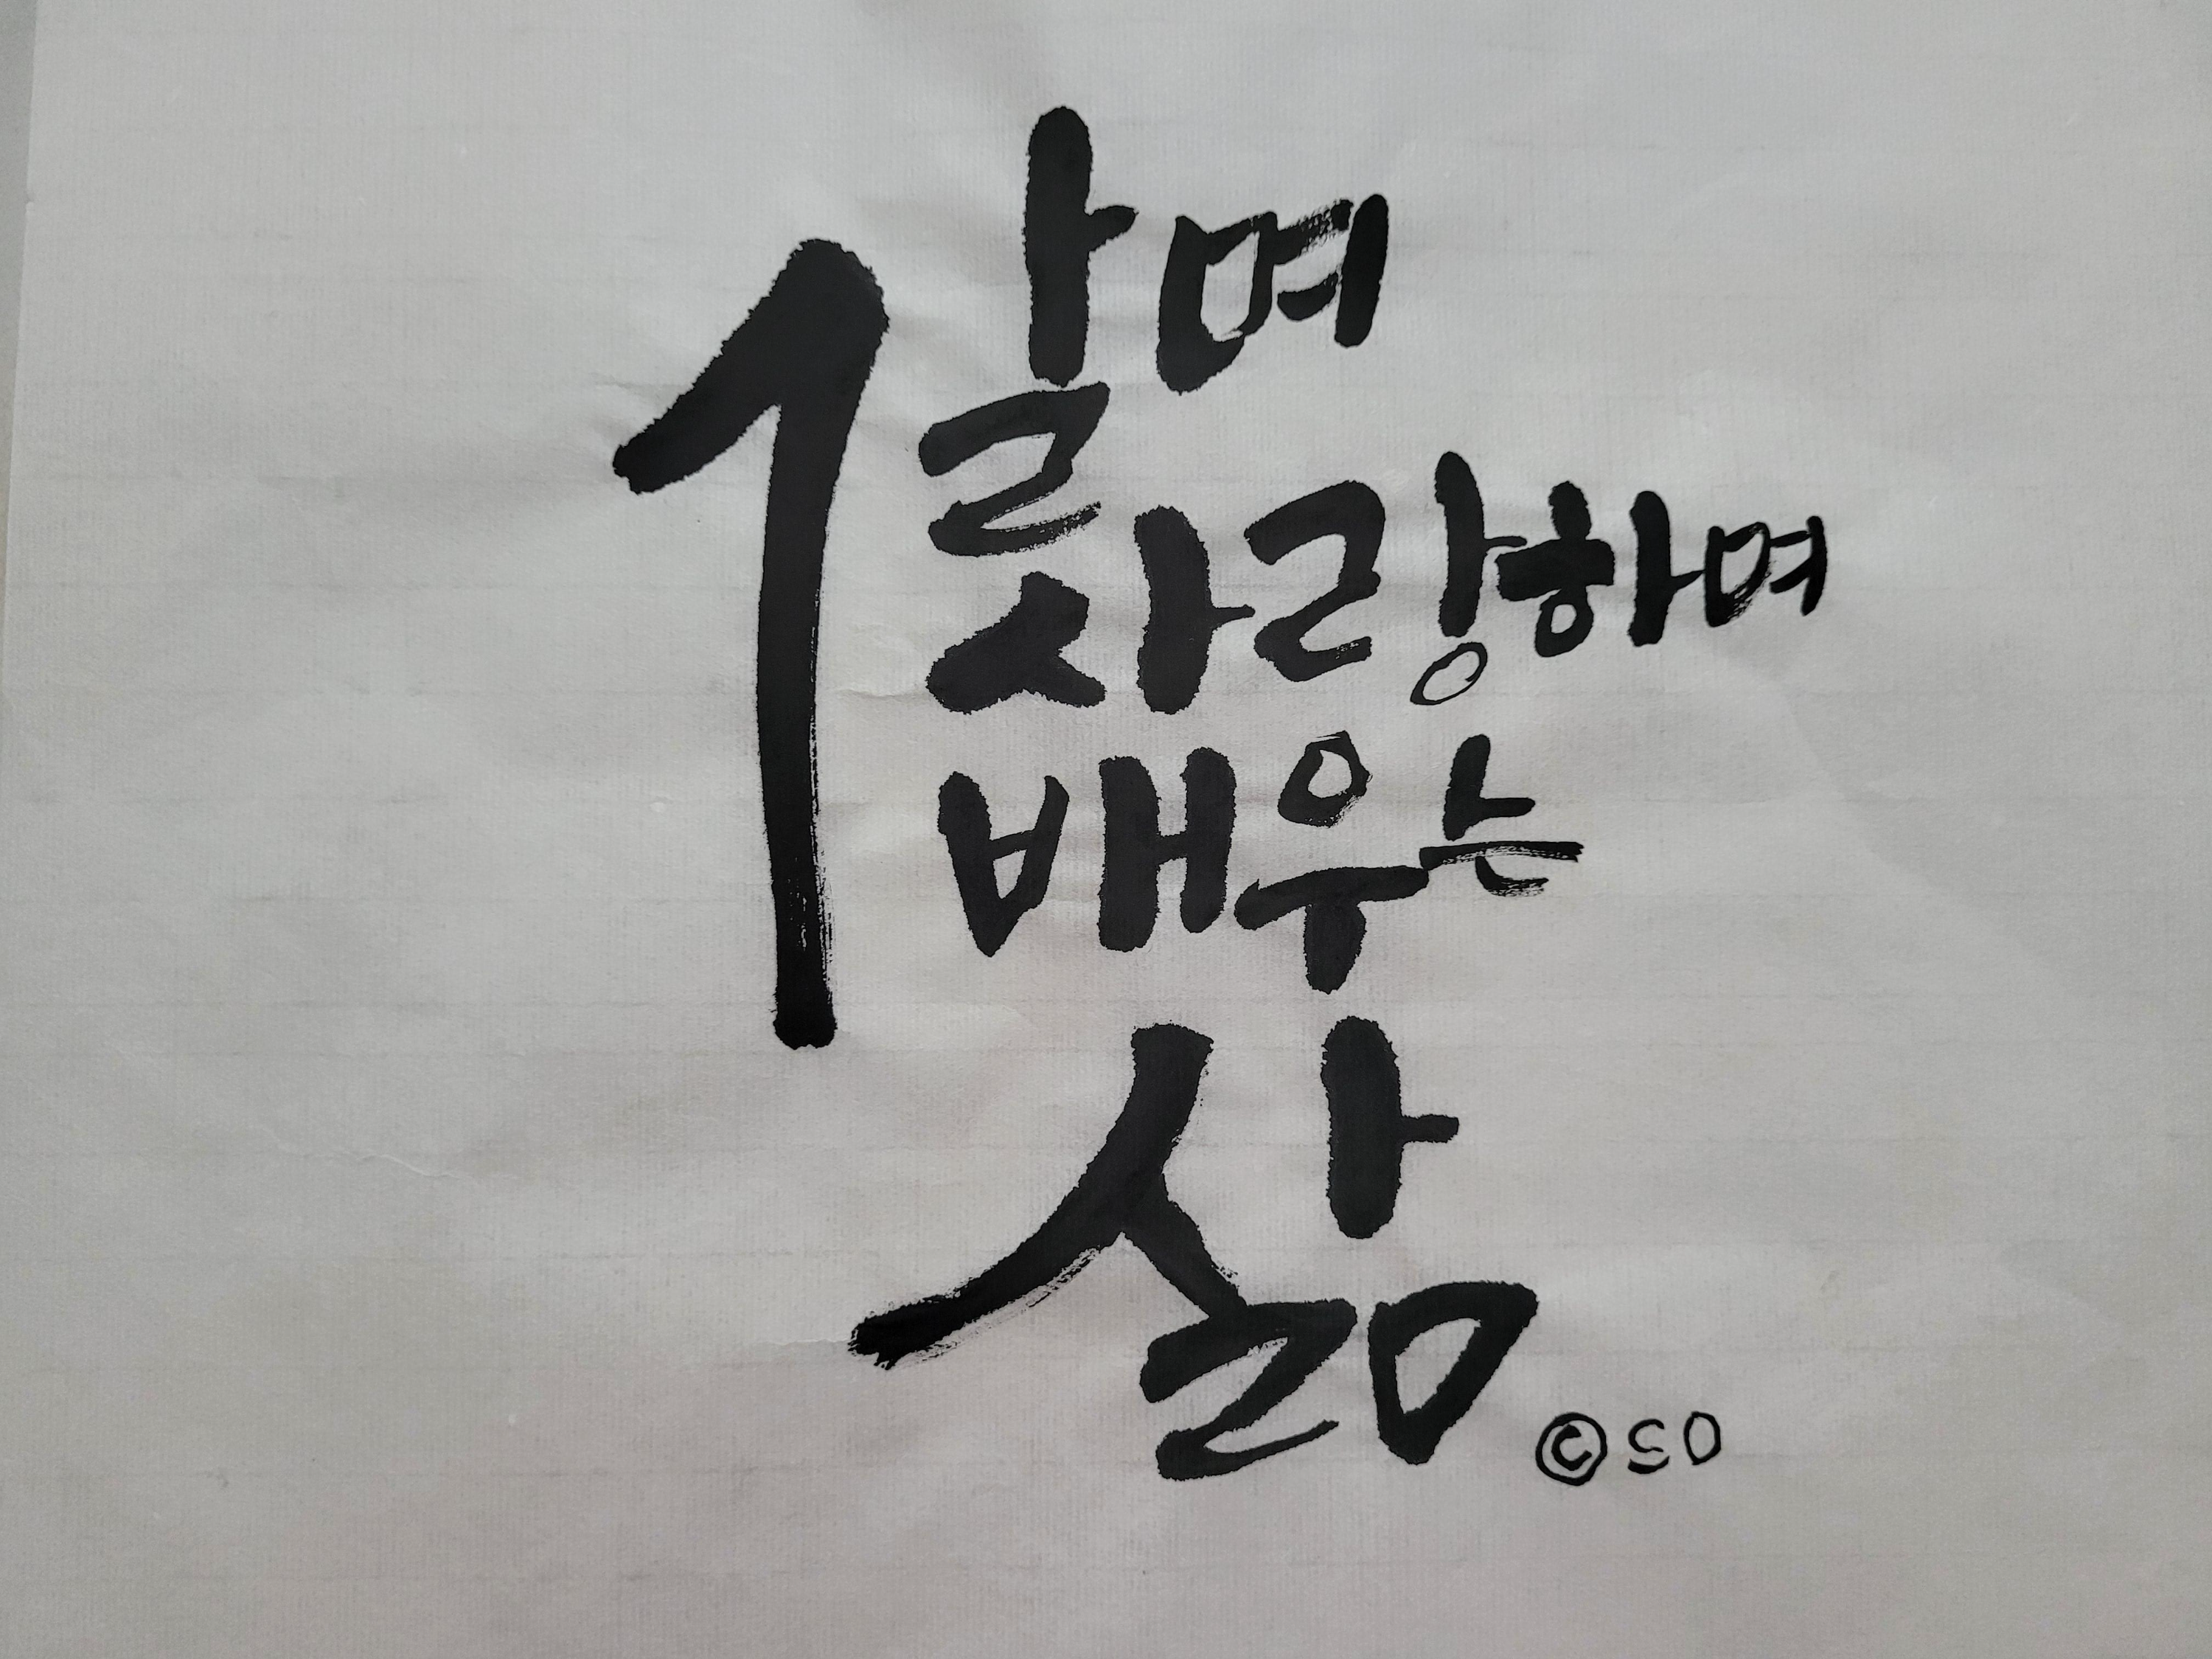 살며
사랑하며
배우는
삶
©SO